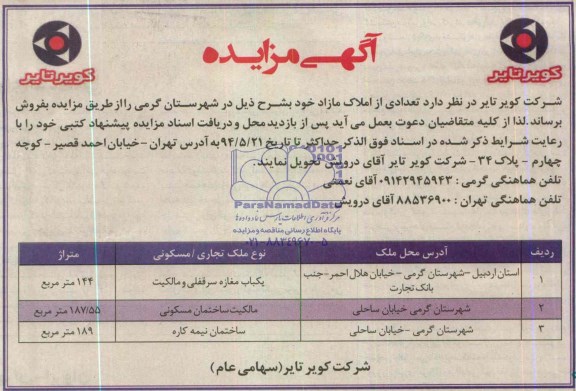 آگهی مزایده
کویر تایر
کویر تایر
شرکت کویر تایر در نظر دارد تعدادی از املاک مازاد خود بشرح ذیل در شهرستان گرمی را از طریق مزایده بفروش
برساند. لذا از کلیه متقاضیان دعوت بعمل می آید پس از بازدید محل و دریافت اسناد مزایده پیشنهاد کتبی خود را با
رعایت شرایط ذکر شده در اسناد فوق الذکر حداکثر تا تاریخ ۹۴/۵/۲۱ به آدرس تهران - خیابان احمد قصیر - کوچه
چهارم - پلاک ۳۴ - شرکت کویر تایر آقای درویش تحویل نمایند.
تلفن هماهنگی گرمی : ۰۹۱۴۲۹۴۵۹۴۳ آقای نعمتی
تلفن هماهنگی تهران : ۸۸۵۳۶۹۰۰ آقای درویش
ParsNamadData
پایگاه اطلاع رسانی مناقصه و مزایده
۰۲۱-۸۸۳۴۹۶۷۰-۵
ردیف آدرس محل ملک نوع ملک تجاری / مسکونی متراژ
۱ استان اردبیل - شهرستان گرمی - خیابان هلال احمر - جنب بانک تجارت یکباب مغازه سرقفلی و مالکیت ۱۴۴ متر مربع
۲ شهرستان گرمی خیابان ساحلی مالکیت ساختمان مسکونی ۱۸۷/۵۵ متر مربع
۳ شهرستان گرمی - خیابان ساحلی ساختمان نیمه کاره ۱۸۹ متر مربع
شرکت کویر تایر (سهامی عام)